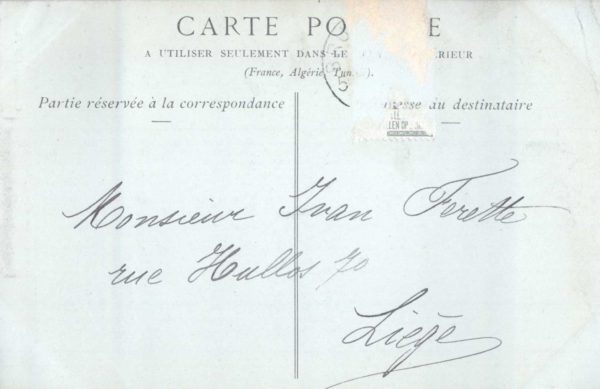 CARTE PO E
A UTILISER SEULEMENT DANS LE RIEUR
(France, Algérie, Tun ).
Partie réservée à la correspondance
esse du destinataire
LLEN OP
Monsieur Ivan Ferette
rue Hullos 70
Liége